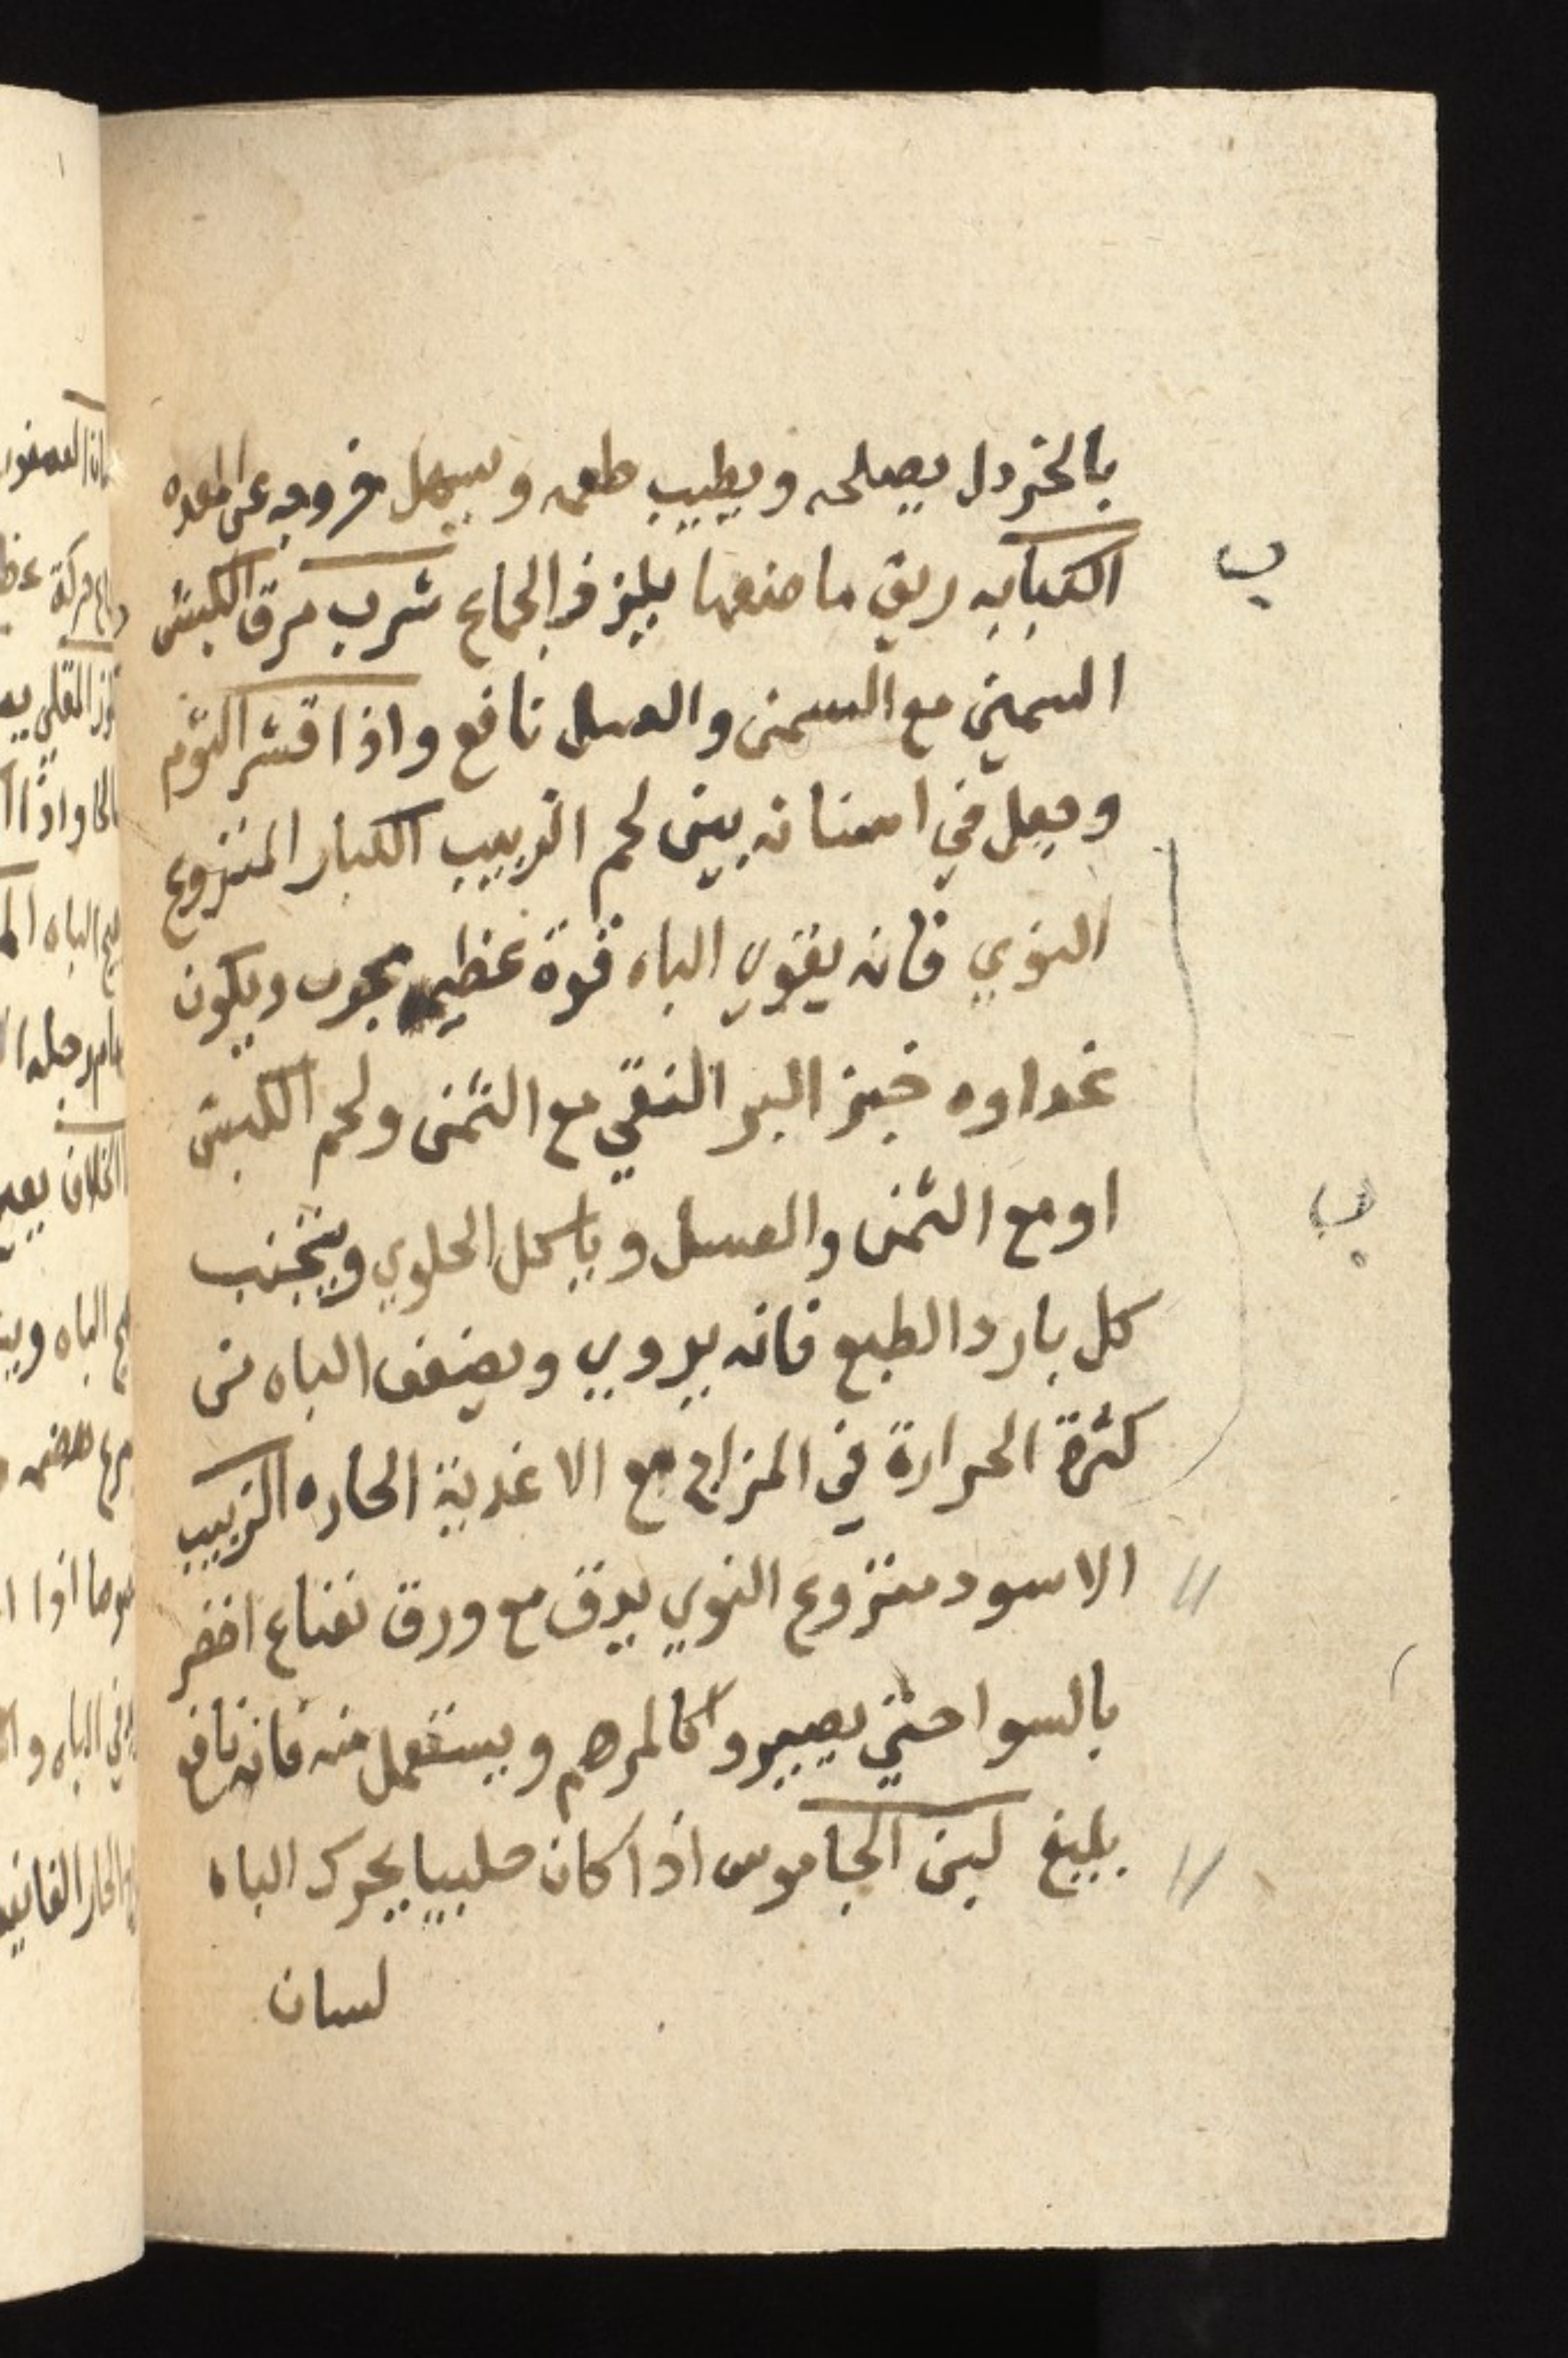 بالخردل يصلحه ويطيب طعمه ويسهل خروجه عن المعده
الكبابه ريق ماضغها يلذذ في الجماع شرب مرق الكبش
السمين مع السمن والعسل نافع واذا قشر الثوم
وجعل في اسنانه بين لحم الزبيب الكبار المنزوع
النوي فانه يقوي الباه قوة عظيمه مجرب ويكون
غداوه خبز البر النقي مع الثمن ولحم الكبش
او مع الثمن والعسل وياكل الحلوي ويتجنب
كل بارد الطبع فانه يردي ويضعف الباه من
كثرة الحرارة في المزاج مع الاغدية الحاره الزبيب
الاسود منزوع النوي يدق مع ورق نعناع اخضر
بالسوا حتي يصير كالمرهم ويستعمل منه فانه نافع
بليغ لبن الجاموس اذا كان حليبا يحرك الباه
لسان